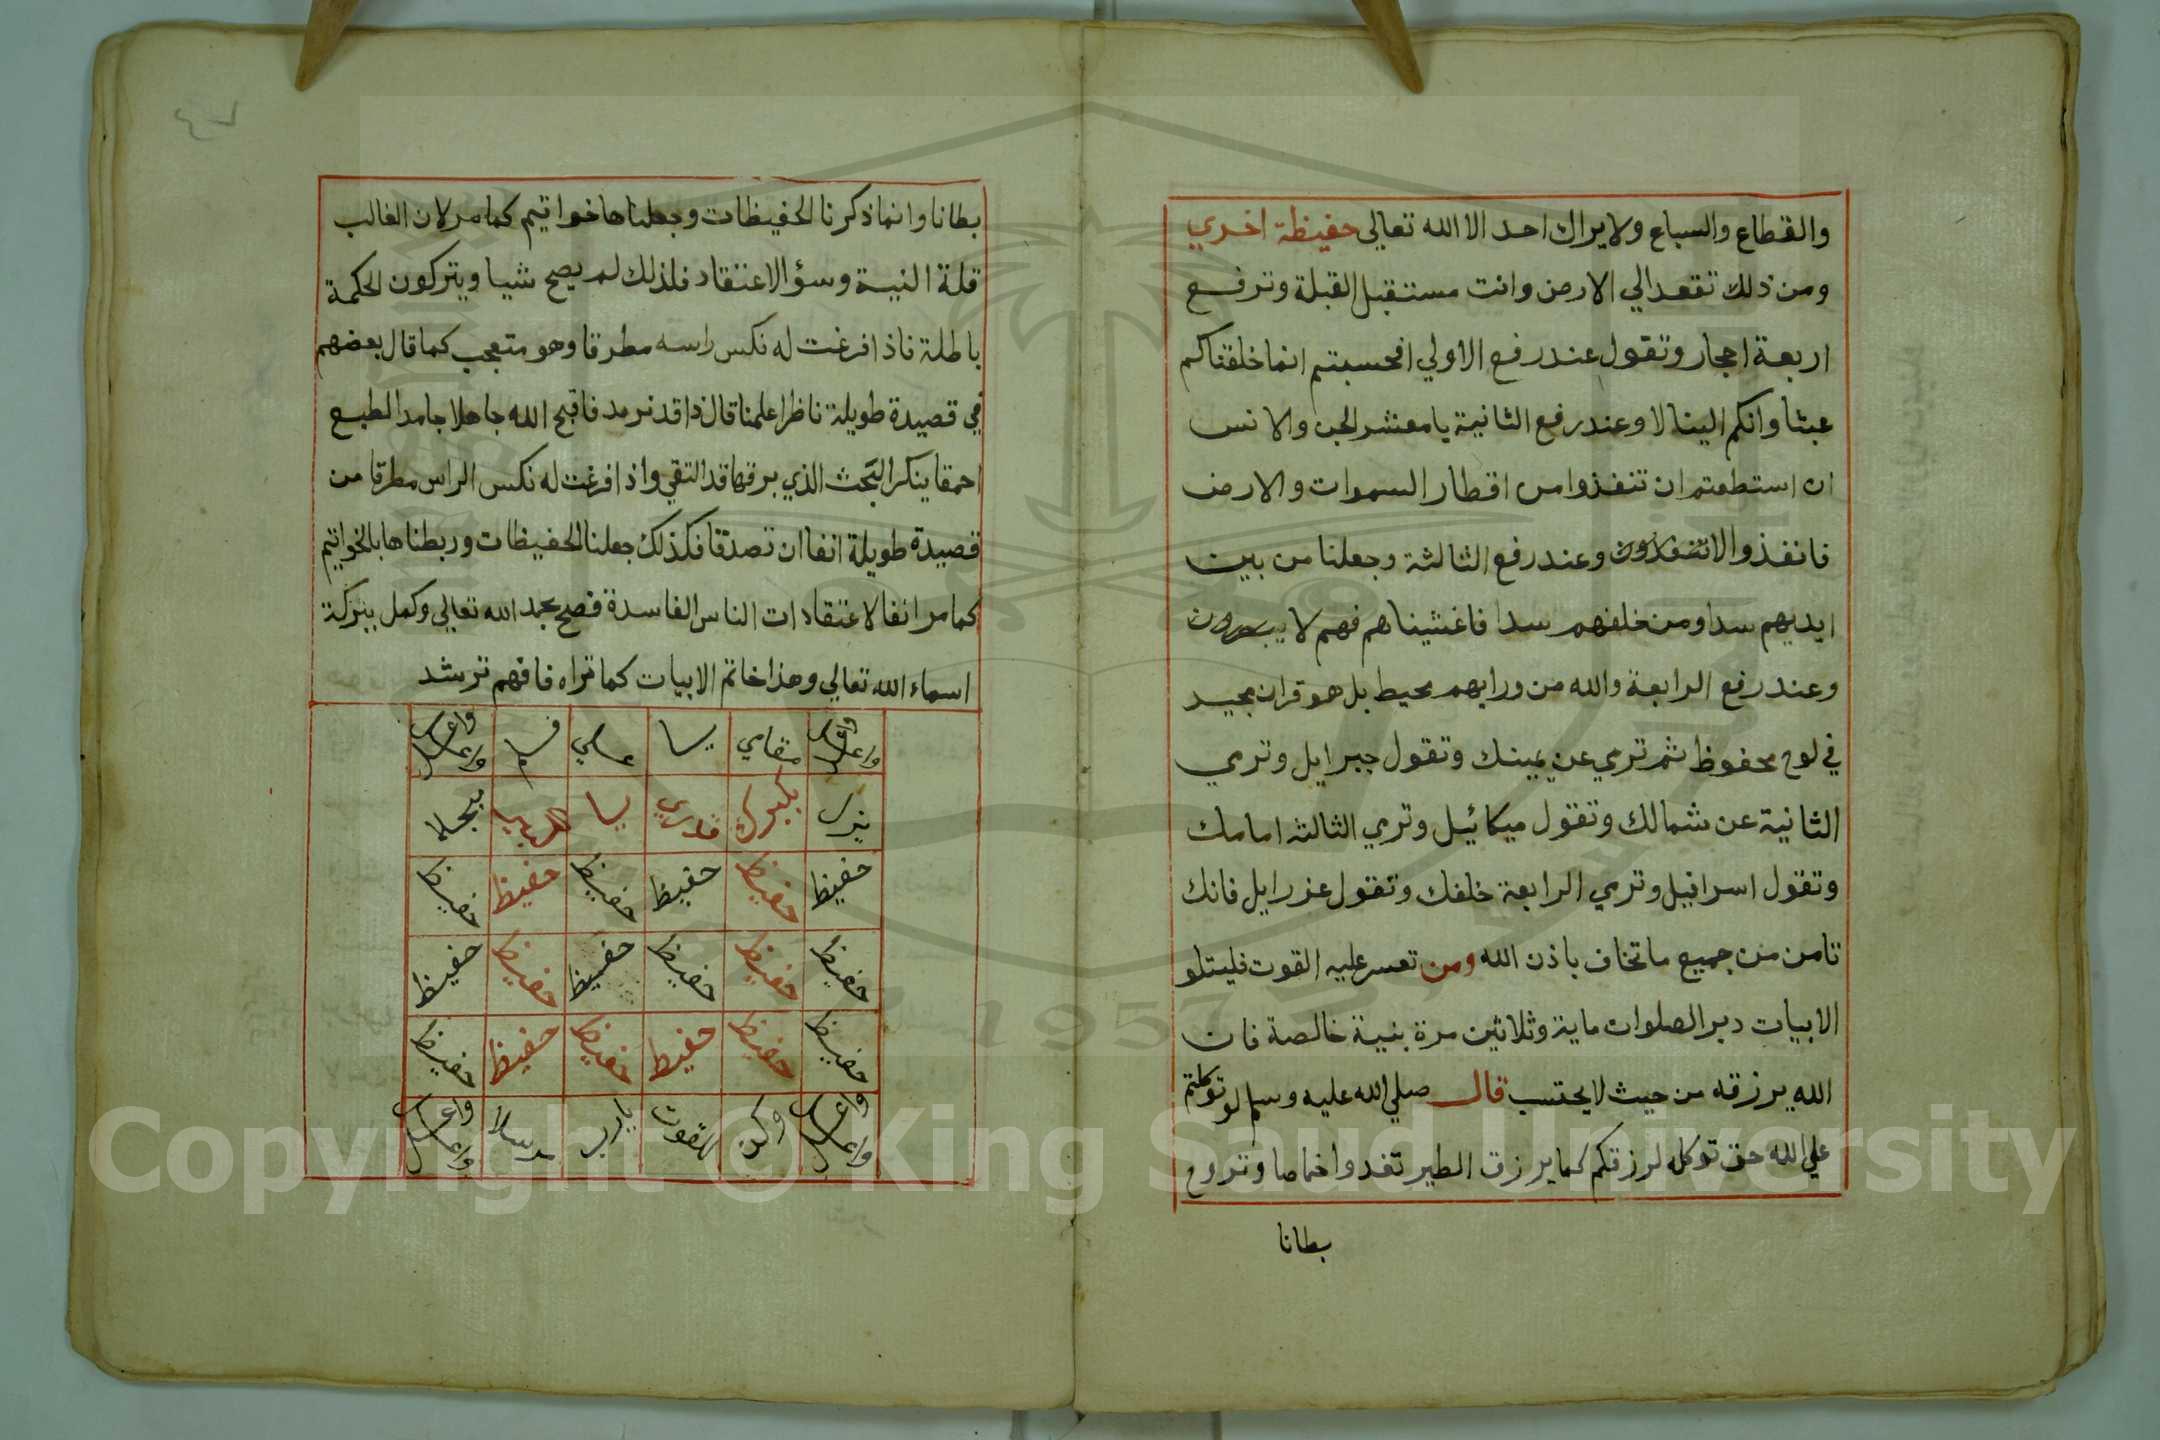 والقطاع والسباع ولا يراك احد الا الله تعالي حفيظة اخري
ومن ذلك تقعد الي الارض وانت مستقبل القبلة وترفع
اربعة احجار وتقول عند رفع الاولي افحسبتم انما خلقناكم
عبثا وانكم الينا لا وعند رفع الثانية يا معشر الجن والانس
ان استطعتم ان تنفذوا من اقطار السموات والارض
فانفذوا لا تنفذون وعند رفع الثالثة وجعلنا من بين
ايديهم سدا ومن خلفهم سدا فاغشيناهم فهم لا يبصرون
وعند رفع الرابعة والله من ورايهم محيط بل هو قران مجيد
في لوح محفوظ ثم ترمي عن يمينك وتقول جبرايل وترمي
الثانية عن شمالك وتقول ميكائيل وترمي الثالثه امامك
وتقول اسرافيل وترمي الرابعة خلفك وتقول عزرايل فانك
تامن من جميع ما تخاف باذن الله ومن تعسر عليه القوت فليتلو
الابيات دبر الصلوات ماية وثلاثين مرة بنية خالصة فان
الله يرزقه من حيث لا يحتسب قال صلي الله عليه وسلم لو توكلتم
علي الله حق توكله لرزقكم كما يرزق الطير تغدوا خماصا وتروح
بطانا
٤٧
بطانا وانما ذكرنا الحفيظات وجعلناها خواتيم كما مر لان الغالب
قلة النية وسؤ الاعتقاد فلذلك لم يصح شيا ويتركون الحكمة
باطلة فاذا فرغت له نكس راسه مطرقا وهو متعجب كما قال بعضهم
في قصيدة طويلة ناظرا علمنا قال ذا قد نرمد فاقبح الله جاهلا جامد الطبع
احمقا ينكر البحث الذي برقها قد التقي واذا فرغت له نكس الراس مطرقا من
قصيدة طويلة انفا ان تصدقا فكذلك جعلنا الحفيظات وربطناها بالخواتيم
كما مر انفا لاعتقادات الناس الفاسدة فصح بحمد الله تعالي وكمل ببركة
اسماء الله تعالي وهذا خاتم الابيات كما تراه فافهم ترشد
مقامي يسا عاصي قسم
حفيظ حفيظ حفيظ حفيظ حفيظ حفيظ
حفيظ حفيظ حفيظ حفيظ حفيظ حفيظ
حفيظ حفيظ حفيظ حفيظ حفيظ حفيظ
وكن يارب مرسلا
1957
Copyright © King Saud University